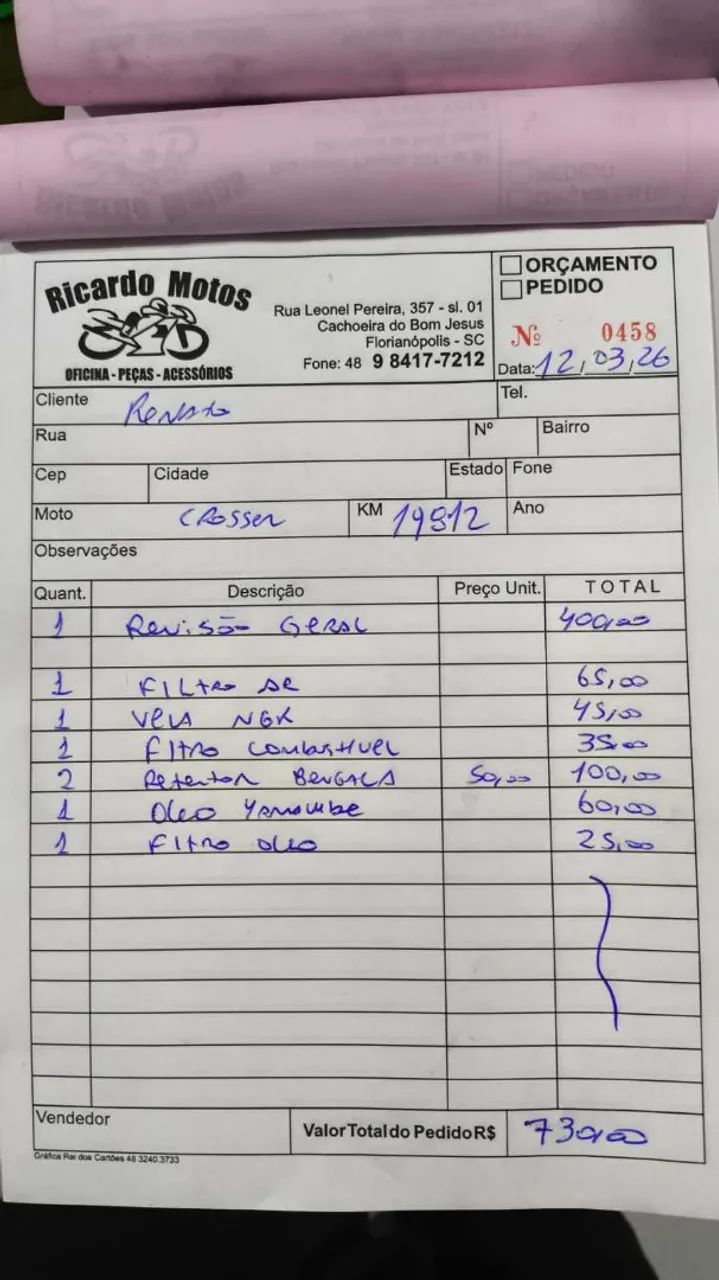 Ricardo Motos
OFICINA - PEÇAS - ACESSÓRIOS
Rua Leonel Pereira, 357 - sl. 01
Cachoeira do Bom Jesus
Florianópolis - SC
Fone: 48 9 8417-7212
ORÇAMENTO
PEDIDO
Nº 0458
Data: 12,03,26
Cliente Renato
Tel.
Rua
Nº
Bairro
Cep
Cidade
Estado
Fone
Moto CROSSER
KM 19812
Ano
Observações
Quant. Descrição Preço Unit. TOTAL
1 Revisão GERAL 400,00
1 FILtro AR 65,00
1 VELA NGK 45,00
1 FIltro Combustivel 35,00
2 Retentor BENGALA 50,00 100,00
1 OLeo Yamalube 60,00
1 FIltro OLeo 25,00
Vendedor
Valor Total do Pedido R$ 730,00
Gráfica Rei dos Cartões 48 3240.3733